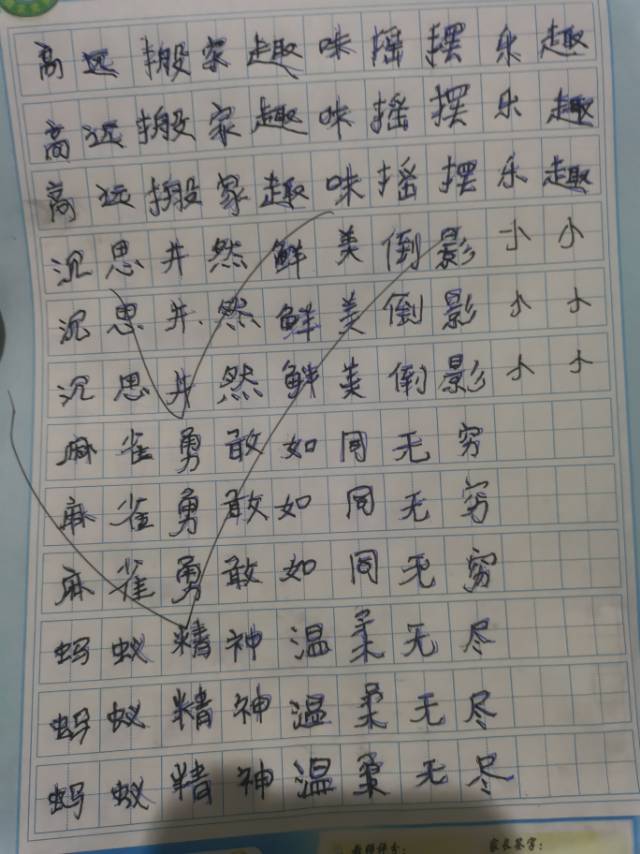 高远搬家趣味摇摆乐趣
高远搬家趣味摇摆乐趣
高远搬家趣味摇摆乐趣
沉思井然鲜美倒影小小
沉思井然鲜美倒影小小
沉思井然鲜美倒影小小
麻雀勇敢如同无穷
麻雀勇敢如同无穷
麻雀勇敢如同无穷
蚂蚁精神温柔无尽
蚂蚁精神温柔无尽
蚂蚁精神温柔无尽
家长签字: